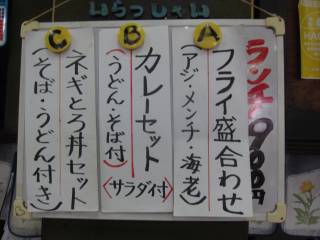 いらっしゃい
ランチ 900円
A
フライ盛合わせ
(アジ・メンチ・海老)
B
カレーセット
(うどん・そば付)
<サラダ付>
C
ネギとろ丼セット
(そば・うどん付き)